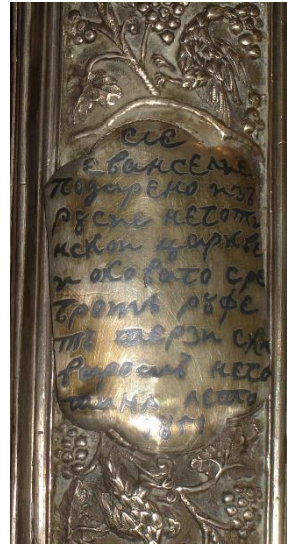 сие
евангелие
подарено изъ
русие неготи
нскои царкве
и оковато сре
бромъ руфе
тъ терзи ска
варошъ него
тина лето
1851